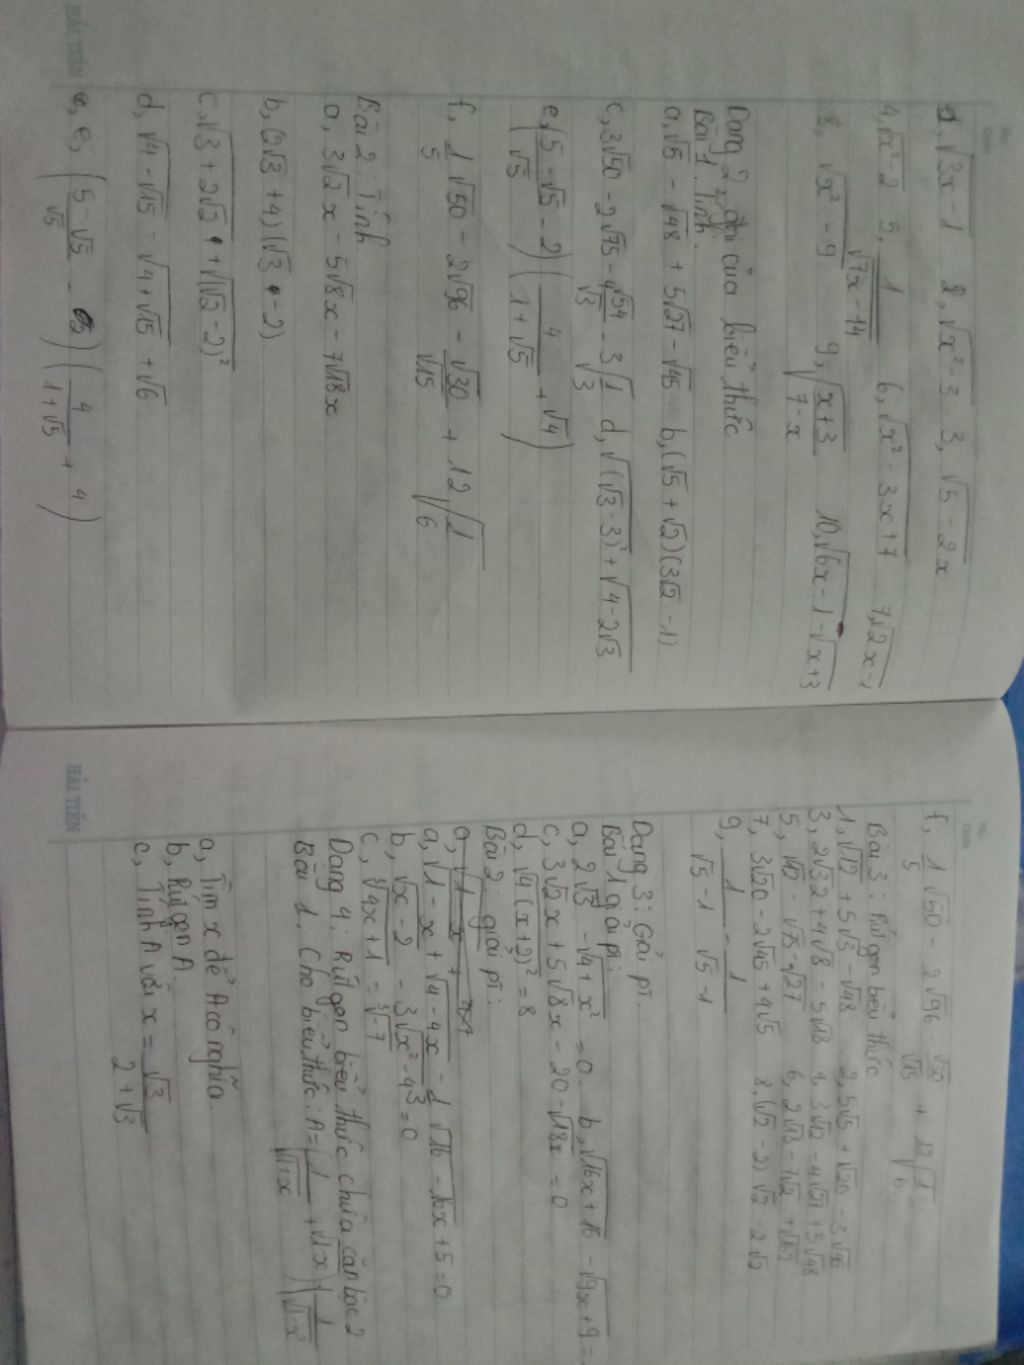 1, √3x-1   2, √x²-3   3, √5-2x
4, √x²-2   5, 1/√7x-14   6, √x²-3x+7   7, √2x-1
8, √x²-9   9, √x+3/7-x   10, √6x-1-√x+3
Dạng 2 đ/i của biểu thức
Bài 1: Tính.
a, √5 - √48 + 5√27 - √45   b, (√5+√2)(3√2-1)
c, 3√50 - 2√75 - √54/√3 - 3√1/3   d, √(√3-3)² + √4-2√3
e, (5-√5/√5 - 2)(4/1+√5 + √4)
f, 1/5 √50 - 2√96 - √30/√15 + 12√1/6
Bài 2: Tính
a, 3√2x - 5√8x - 7√18x
b, (2√3+4)(√3-2)
c, √3+2√2 + √(√2-2)²
d, √4-√15 - √4+√15 + √6
e, (5-√5/√5 - 2)(4/1+√5 + 4)
HẢI TIẾN
f, 1/5 √50 - 2√96 - √30/√15 + 12√1/6
Bài 3: Rút gọn biểu thức
1, √12 + 5√3 - √48   2, 5√5 + √20 - 3√45
3, 2√32 + 4√8 - 5√18   4, 3√12 - 4√27 + 5√48
5, √12 - √75 - √27   6, 2√18 - 7√2 + √162
7, 3√20 - 2√45 + 4√5   8, (√2-2)√2 - 2√2
9, 1/√5-1 - 1/√5-1
Dạng 3: Giải pt.
Bài 1 giải pt:
a, 2√3 - √4+x² = 0   b, √16x+16 - √9x+9 =
c, 3√2x + 5√8x - 20 - √18x = 0
d, √4(x+2)² = 8
Bài 2: giải pt:
a, √1-x +
a, √1-x + √4-4x - 1/3 √16-16x + 5 = 0
b, √x-2 - 3√x²-4 = 0
c, ³√4x+1 = ³√-7
Dạng 4: Rút gọn biểu thức chứa căn bậc 2
Bài 1: Cho biểu thức: A = (1/√1+x + √1-x)(1/√1-x²
a, Tìm x để A có nghĩa.
b, Rút gọn A.
c, Tính A với x = √3/2+√3
HẢI TIẾN